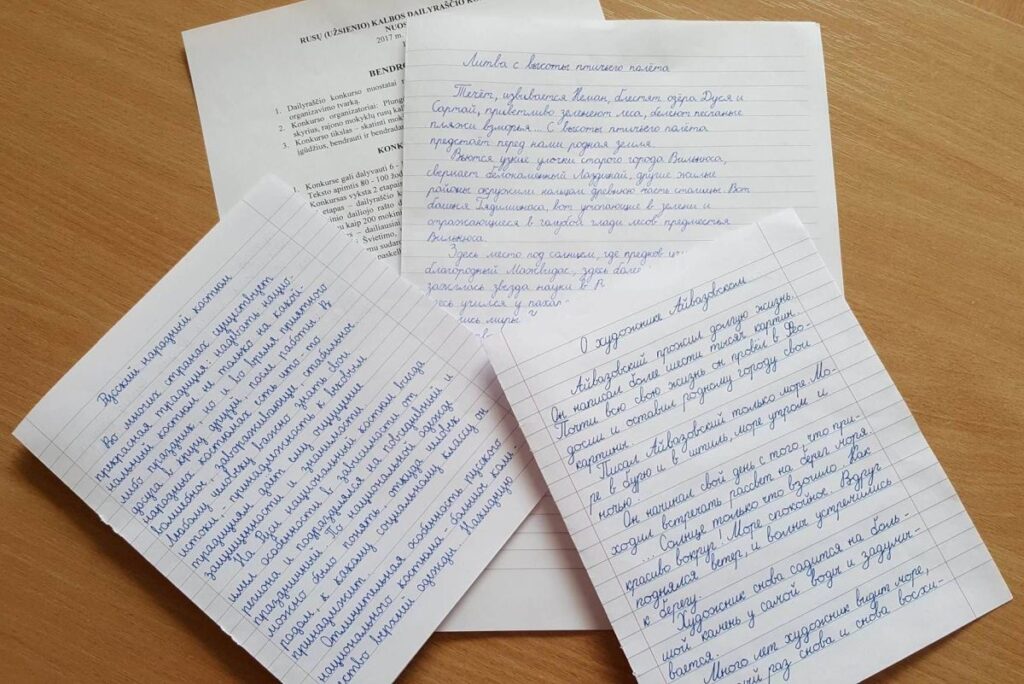 RUSŲ (UŽSIENIO) KALBOS DAILYRAŠČIO
2017 m.
1. Dailyraščio konkurso nuostatai
organizavimo tvarką.
2. Konkurso organizatoriai:
skyrius, rajono mokyklų rusų
3. Konkurso tikslas – skatinti
įgūdžius, bendrauti ir
1. Konkurse gali dalyvauti 6 –
Teksto apimtis 80 – 100
Konkursas vyksta 2
etapas – dailyraščio
dailiojo rašto
kaip 200
– dailiausiai
Švietimo,
Литва с высоты птичьего полёта
Течёт, извивается Неман, блестят озёра Дуся и
Сартай, приветливо зеленеют леса, белеют песчаные
пляжи взморья... С высоты птичьего полёта
предстаёт перед нами родная земля.
Вьются узкие улочки старого города Вильнюса,
сверкает белокаменный Лаздинай, другие жилые
районы окружили кольцом древнюю часть столицы. Вот
башня Гядиминаса, вот утопающие в зелени и
отражающиеся в голубой глади лесов предместья
Вильнюса.
Здесь место под солнцем, где предков
благородный Мажвидас, здесь
зажглась звезда науки в
учился у
Русский народный костюм
Во многих странах существует
прекрасная традиция: надевать нацио-
нальный костюм не только на какой-
либо праздник, но и во время приятного
досуга в кругу друзей, после работы. В
народных костюмах есть что-то
волшебное, завораживающее, стабильное.
Любому человеку важно знать свои
истоки - принадлежность к вековым
традициям даёт ему ощущение
защищённости и значимости.
На Руси национальный костюм всегда
имел особенности в зависимости от
региона и подразделялся на повседневный и
праздничный. По национальной одежде
можно было понять, откуда человек
родом, к какому социальному классу он
принадлежит.
Отличительная особенность русского
национального костюма - большое коли-
чество верхней одежды. Накидную
О художнике Айвазовском
Айвазовский прожил долгую жизнь.
Он написал более шести тысяч картин.
Почти всю свою жизнь он провёл в Фео-
досии и оставил родному городу свои
картины.
Писал Айвазовский только море. Мо-
ре в бурю и в штиль, море утром и
ночью.
Он начинал свой день с того, что при-
ходил встречать рассвет на берег моря.
... Солнце только что взошло. Как
красиво вокруг! Море спокойное. Вдруг
поднялся ветер, и волны устремились
к берегу.
Художник снова садится на боль-
шой камень у самой воды и задумы-
вается.
Много лет художник видит море,
раз снова и снова восхи-